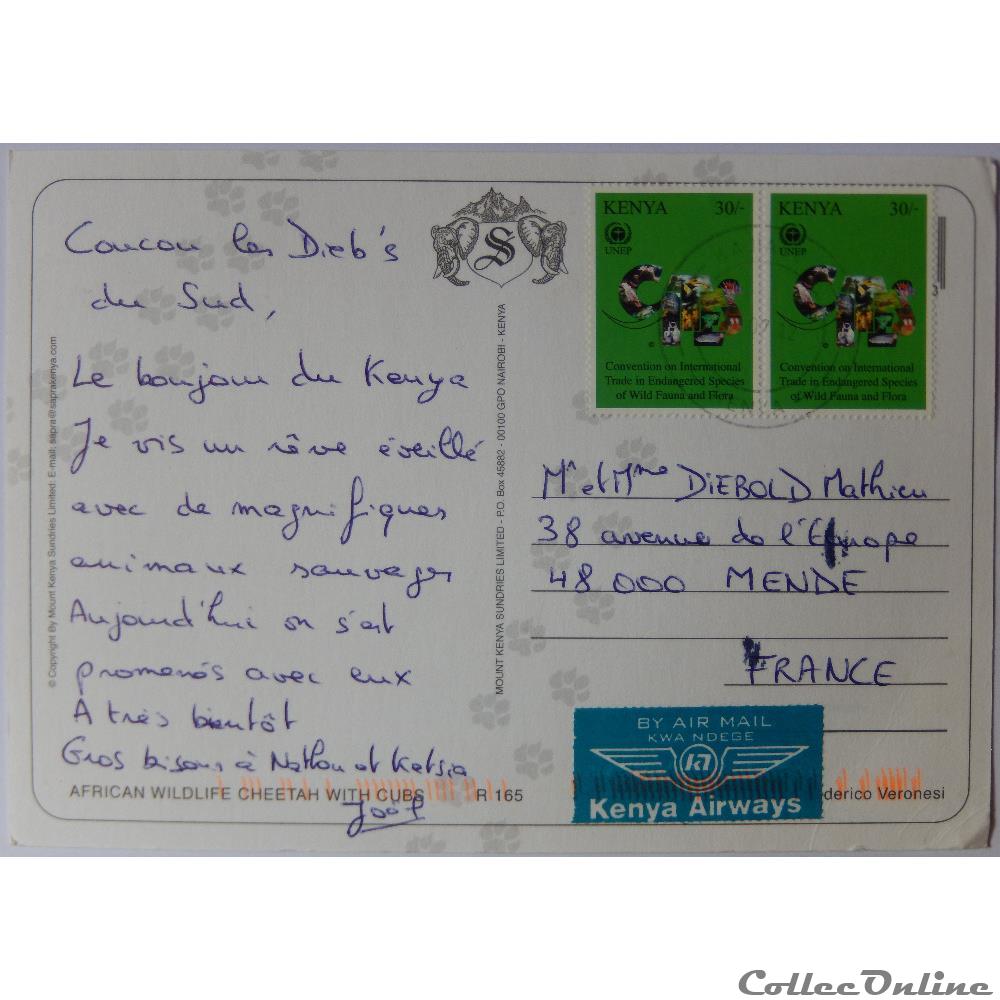 Coucou les Dieb's
du Sud,
Le bonjour du Kenya
Je vis un rêve éveillé
avec de magnifiques
animaux sauvages
Aujourd'hui on s'est
promenés avec eux
A très bientôt
Gros bisous à Nathan et Ketsia
AFRICAN WILDLIFE CHEETAH WITH CUBS R 165
© Copyright By Mount Kenya Sundries Limited: E-mail: sapra@saprakenya.com
S
MOUNT KENYA SUNDRIES LIMITED - P.O. Box 45882 - 00100 GPO NAIROBI - KENYA
KENYA 30/-
UNEP
CITES
Convention on International
Trade in Endangered Species
of Wild Fauna and Flora
KENYA 30/-
UNEP
CITES
Convention on International
Trade in Endangered Species
of Wild Fauna and Flora
3
Mr et Mme DIEBOLD Mathieu
38 avenue de l'Europe
48000 MENDE
FRANCE
BY AIR MAIL
KWA NDEGE
Kenya Airways
derico Veronesi
CollecOnline